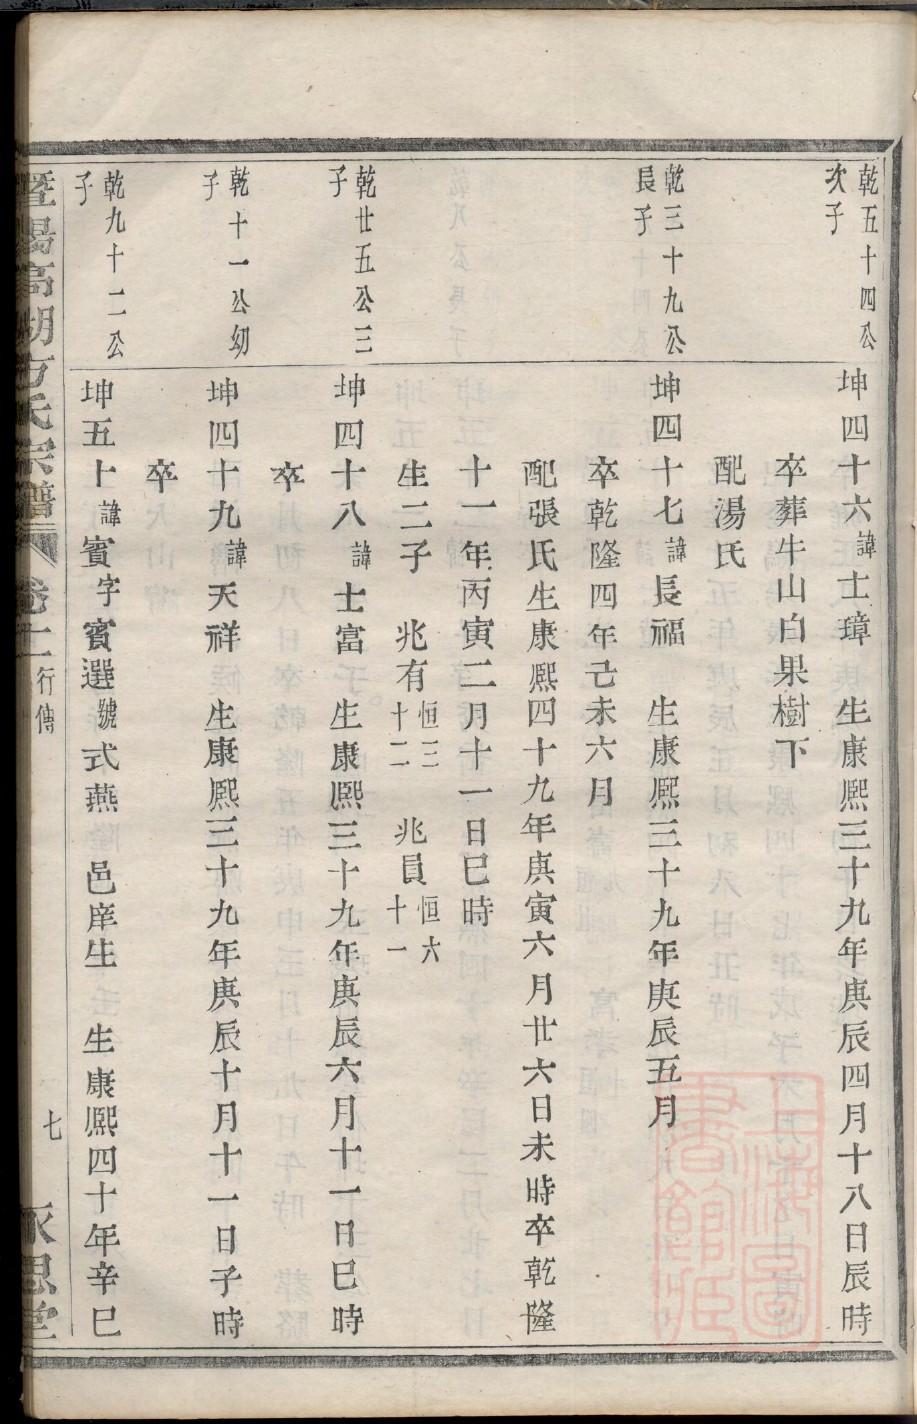 乾五十四公
次子
坤四十六諱士璋　生康熙三十九年庚辰四月十八日辰時
卒葬牛山白果樹下
配湯氏
乾三十九公
長子
坤四十七諱長福　生康熙三十九年庚辰五月
卒乾隆四年己未六月
配張氏生康熙四十九年庚寅六月廿六日未時卒乾隆
十一年丙寅二月十一日巳時
生二子　兆有恒三十二　兆員恒六十一
乾廿五公三
子
坤四十八諱士富　生康熙三十九年庚辰六月十一日巳時
卒
乾十一公幼
子
坤四十九諱天祥　生康熙三十九年庚辰十月十一日子時
卒
乾九十二公
子
坤五十諱賓字賓選號式燕　邑庠生　生康熙四十年辛巳
暨陽高湖方氏宗譜　卷十一行傳　七　永思堂